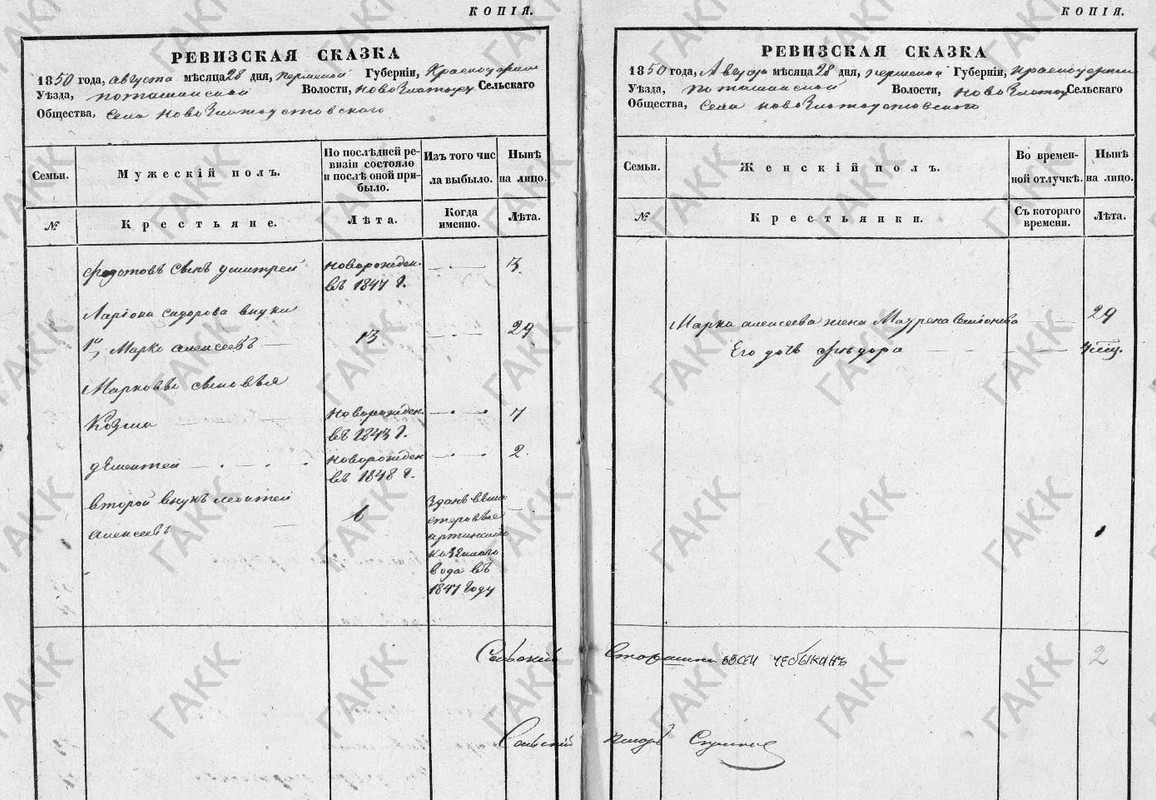 КОПІЯ.
РЕВИЗСКАЯ СКАЗКА
1850 года, августа мѣсяца 28 дня, пермской Губерніи, Красноуфим
Уѣзда, поташинской Волости, ново Златоу Сельскаго
Общества, села ново Златоустовскаго
Семьи.
Мужескій полъ.
По послѣдней ре-
визіи состояло
и послѣ оной при-
было.
Изъ того чис
ла выбыло.
Нынѣ
на лицо.
№
Крестьяне.
Лѣта.
Когда
именно.
Лѣта.
Федотовъ сынъ дмитрей
новорожден.
въ 1847 г.
3.
Ларіона сидорова внуки
1й, Марко Алексеевъ
13
29
Марковы сыновья
Козма
новорожден.
въ 1843 г.
7
дементей
новорожден
въ 1848 г.
2.
второй внукъ
алексеевъ
1847 году
Сельской
Сельской
КОПІЯ.
РЕВИЗСКАЯ СКАЗКА
1850 года, Августа мѣсяца 28 дня, пермской Губерніи, красноуфим
Уѣзда, поташинской Волости, ново Златоу Сельскаго
Общества, села ново Златоустовскаго
Семьи.
Женскій полъ.
Во времен-
ной отлучкѣ.
Нынѣ
на лицо.
№
Крестьянки.
Съ котораго
времени.
Лѣта.
Марка алексеева жена Маурена 29
Его дочь Федора
Старшина евсей чебыкинъ
2
писарь
ГАКК